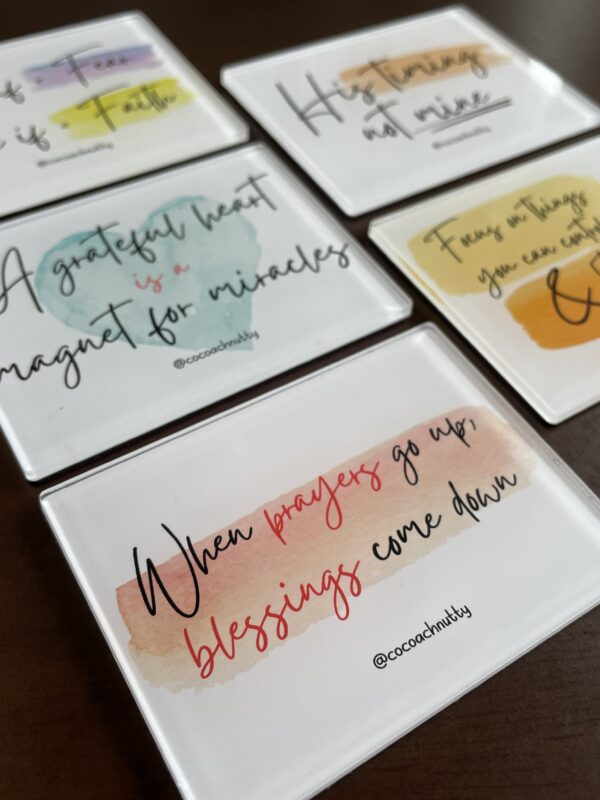 if = Fear
if = Faith
@cocoachnutty
His timing
not mine
@cocoachnutty
A grateful heart
is a
magnet for miracles
@cocoachnutty
Focus on things
you can control
&
When prayers go up,
blessings come down
@cocoachnutty